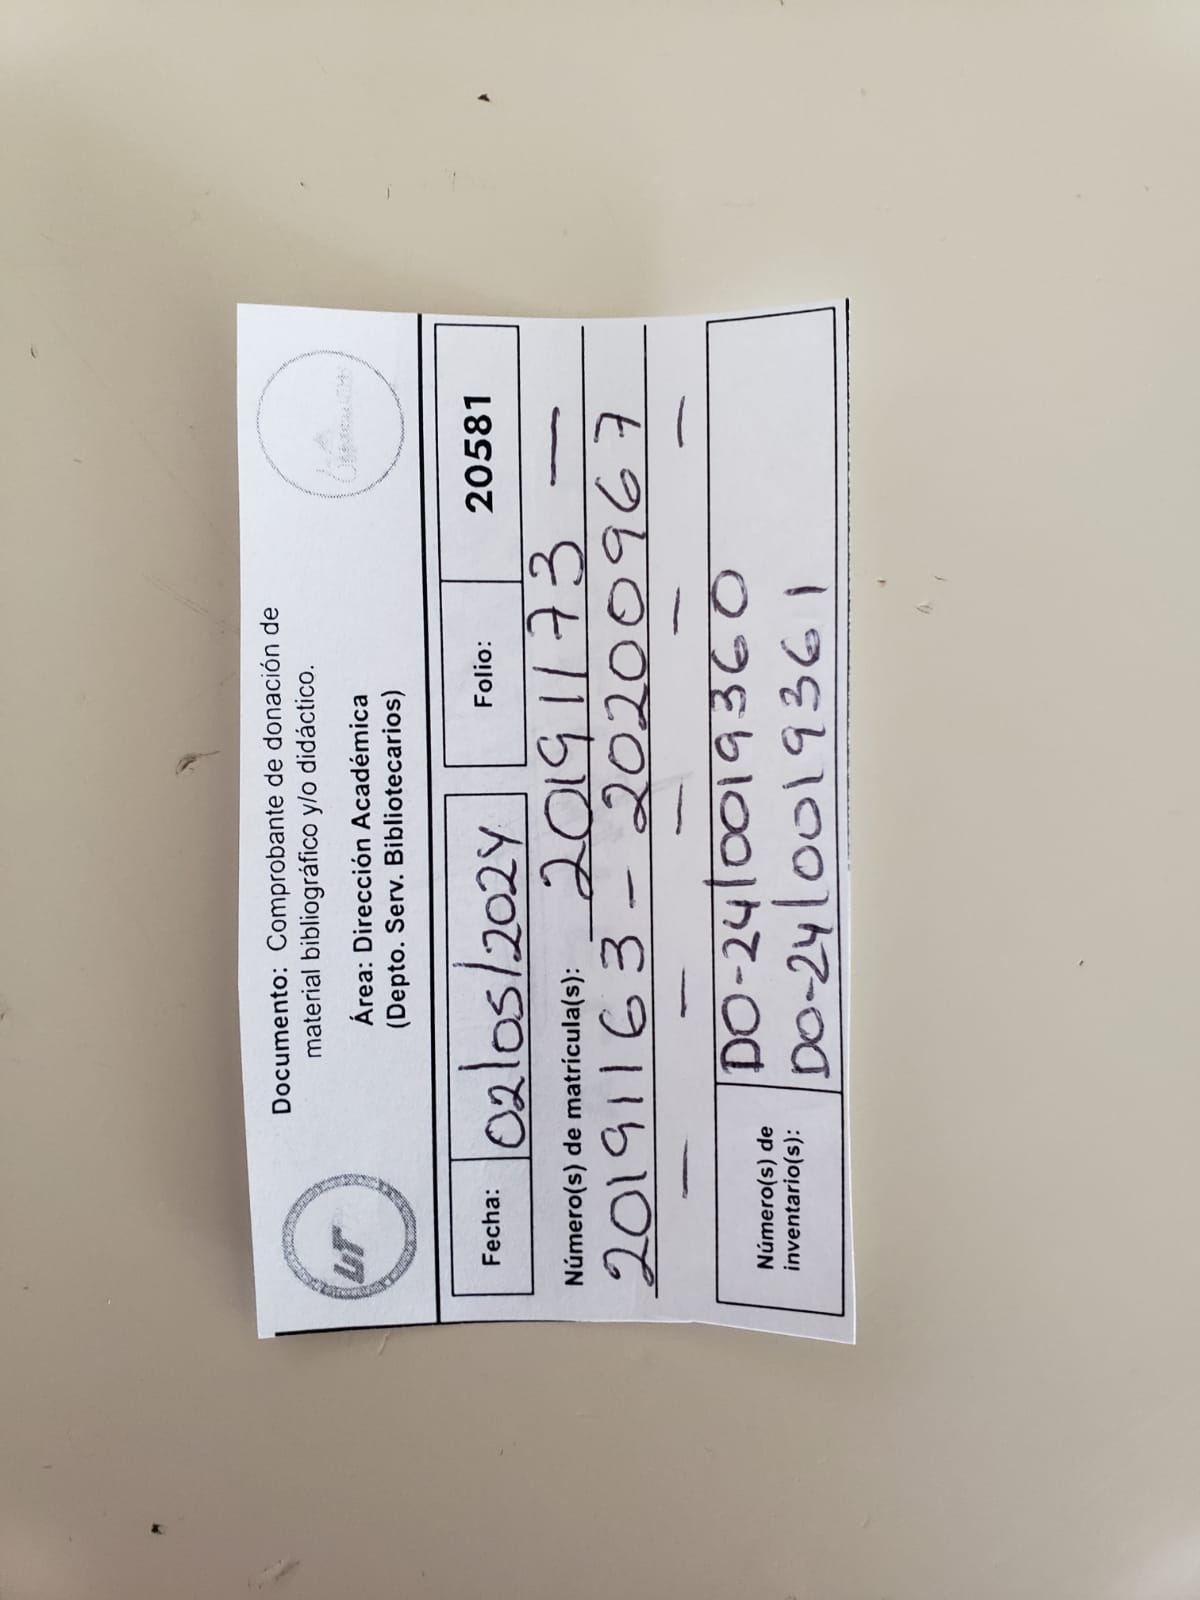 Documento: Comprobante de donación de
material bibliográfico y/o didáctico.
Área: Dirección Académica
(Depto. Serv. Bibliotecarios)
Fecha: 02/05/2024 Folio: 20581
Número(s) de matrícula(s): 20191173 —
20191163 - 20200967
— — — — —
Número(s) de
inventario(s):
DO-24/0019360
DO-24/0019361